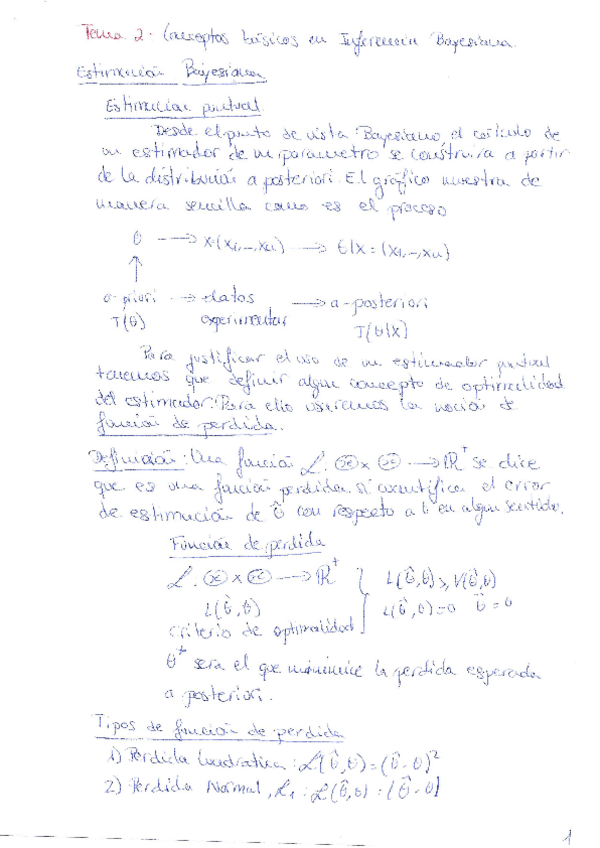 Tema 2. Conceptos básicos en Inferencia Bayesiana
Estimación Bayesiana
Estimación puntual
Desde el punto de vista Bayesiano, el cálculo de
un estimador de un parametro se construira a partir
de la distribución a posteriori. El gráfico muestra de
manera sencilla como es el proceso
θ → X=(x₁,-,xₙ) → θ|X=(x₁,-,xₙ)
↑
a-priori → datos → a-posteriori
T(θ) experimentar T(θ|X)
Para justificar el uso de un estimador puntual
tenemos que definir algun concepto de optimalidad
del estimador. Para ello usaremos la noción de
función de perdida.
Definición: Una función L. Ⓗ x Ⓗ → ℝ⁺ se dice
que es una función perdida si cuantifica el error
de estimación de θ̂ con respecto a θ en algun sentido.
Función de perdida
L. Ⓗ x Ⓗ → ℝ⁺ L(θ̂,θ) ≥, V(θ̂,θ)
L(θ̂,θ) L(θ̂,θ)=0 θ̂=θ
criterio de optimalidad
θ* sera el que minimice la perdida esperada
a posteriori.
Tipos de función de perdida
1) Perdida Cuadratica: L(θ̂,θ)=(θ̂-θ)²
2) Perdida Normal, L₁: L(θ̂,θ)=|θ̂-θ|
1